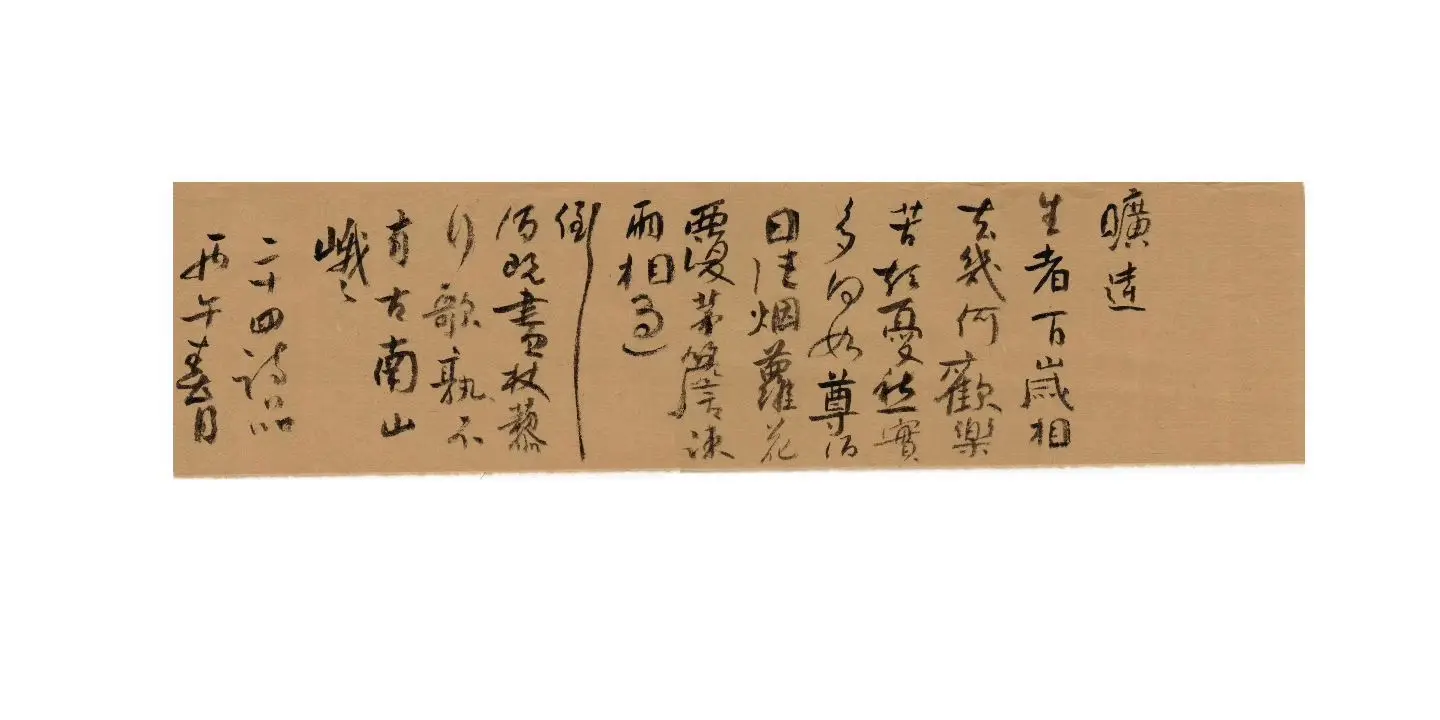 曠達
生者百歲相
去幾何歡樂
苦短憂愁實
多何如尊酒
日往烟蘿花
覆茅簷疎
雨相過
倒
酒既盡杖藜
行歌孰不
有古南山
峨々
二十四詩品
丙午春月